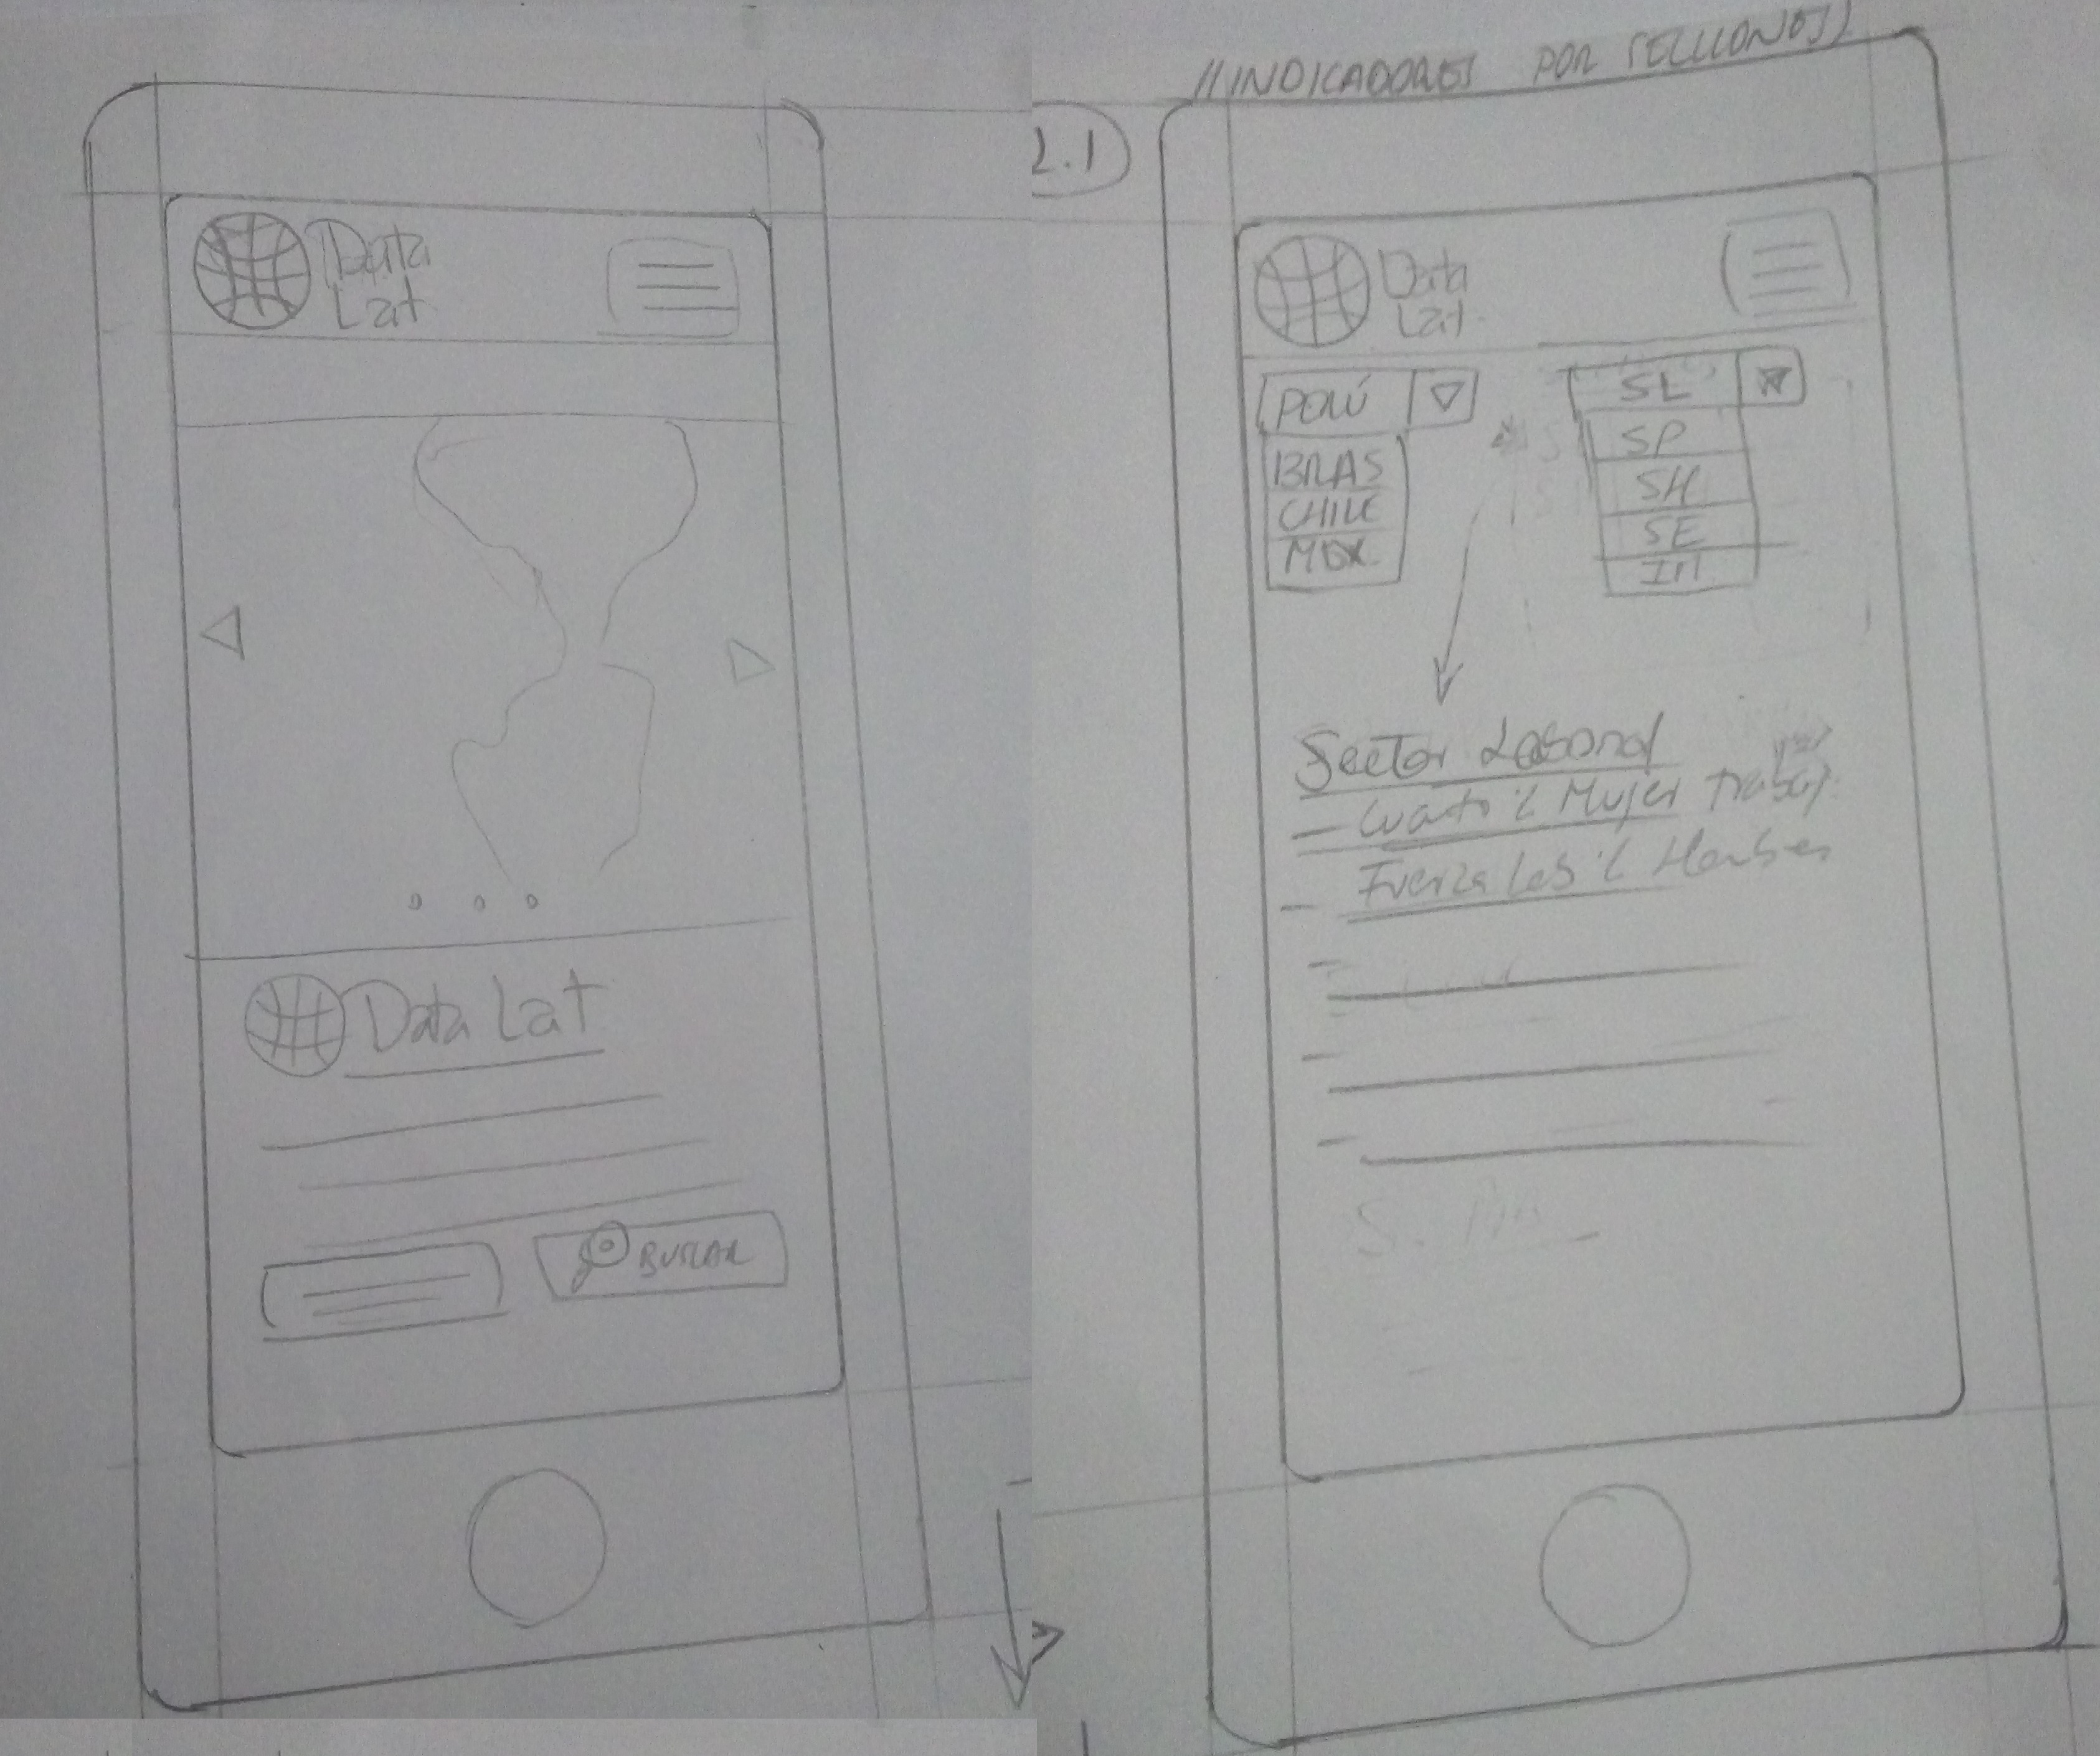 Data
Lat
Data Lat
BUSCAR
INDICADORES POR
2.1
Data
Lat
PERÚ
BRAS
CHILE
MEX
SL
SP
SH
SE
Sector Laboral
Cuanto % Mujer Trabaj
Fuerza Lab % Hombres
S.